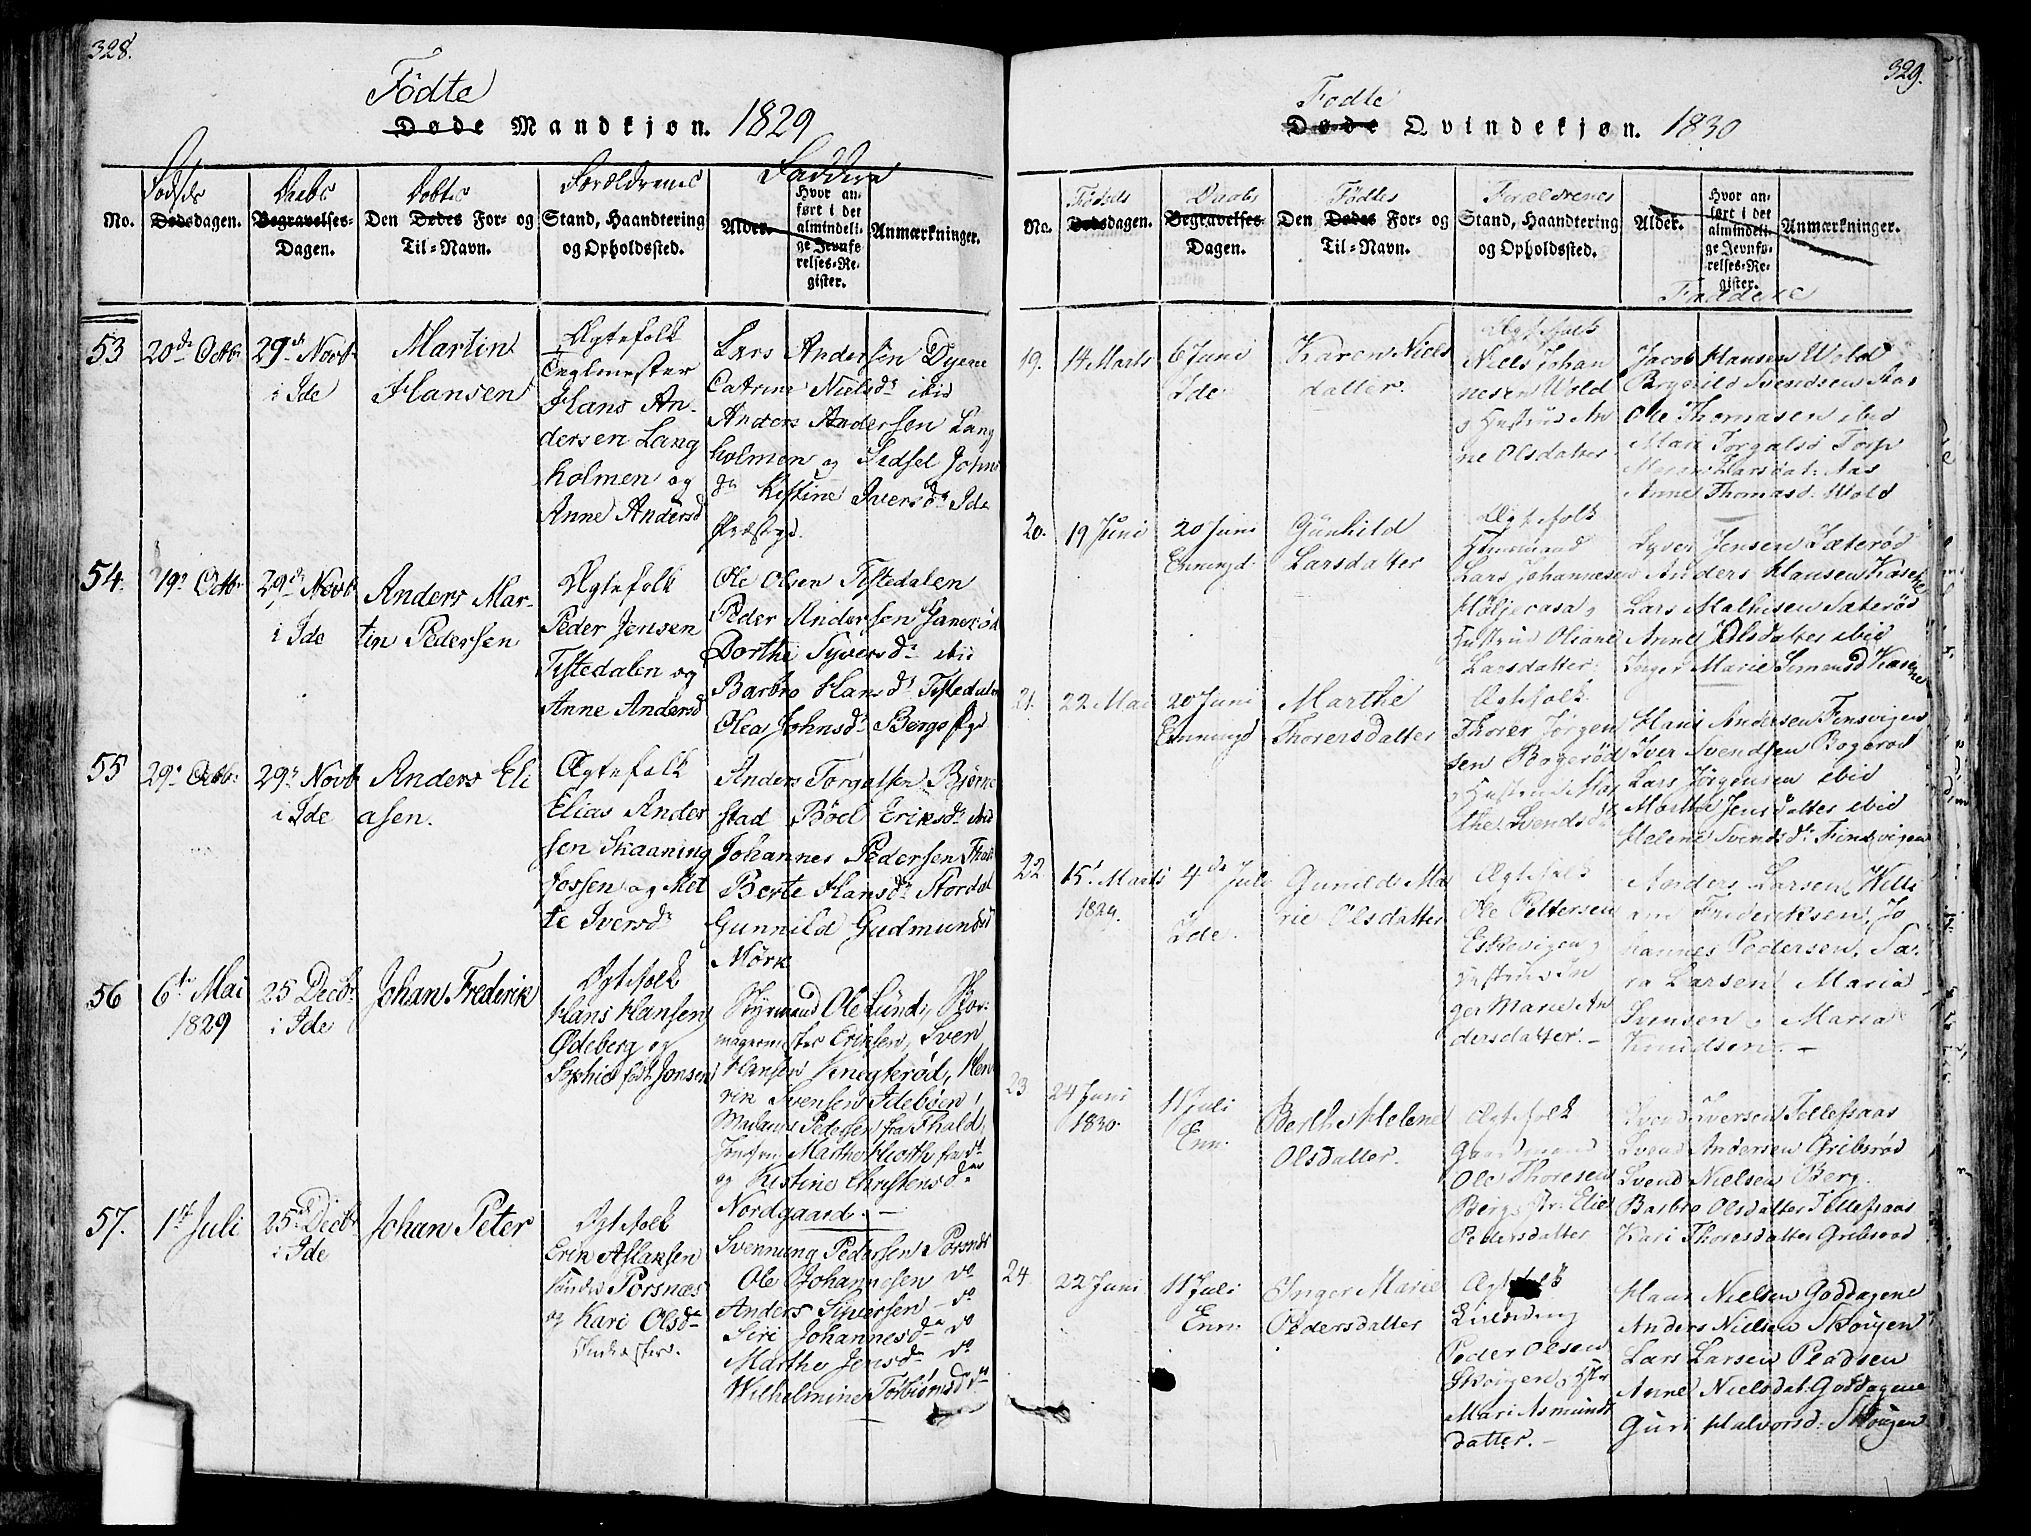 328.
Födte
Døde Mandkjøn. 1829
Födsels Daabs Döbtes Forældrenes Faddere
No. Dødsdagen. Begravelses-Dagen. Den Dødes For- og Til-Navn. Stand, Haandtering og Opholdssted. Alder. Hvor anført i det almindelige Jevnførelses-Register. Anmærkninger.
53 20de Octbr 29de Novbr i Ide
Martin
Hansen
Ægtefolk
Teglmester
Hans An-
dersen Lang
holmen og
Anne Andersd
Lars Andersen Dyrene
Catrine Nielsdr ibid
Anders Andersen Lang
holmen og Sidsel Johns
dr Kistine Iversdr Ide
Præstgd.
54. 19de Octbr 29de Novbr i Ide
Anders Mar-
tin Pedersen
Ægtefolk
Peder Jensen
Tistedalen og
Anne Andersd
Ole Olsen Tistedalen
Peder Andersen
Dorthe Syversdr ibid
Barbro Hansdr Tistedalen
Olea Johnsdr Berge
55 29de Octbr 29de Novb i Ide
Anders Eli
asen.
Ægtefolk
Elias Ander
sen Skaaning
fossen og Met
te Iversdr
Anders Torgalsen Björne
stad Böel Eriksdr
Johannes Pedersen
Berte Hansdr Stordal
Gunnild Gudmundsd
Mörk
56 6te Mai 1829 25 Decbr i Ide
Johan Frederik
Ægtefolk
Hans Hansen
Ødeberg og
Sophie født Jonsen
Styrmand Ole Lund, Skor-
magermester Eriksen, Sven
Hansen Knegterød, Hen
rik Svensen Idebøen,
Madame Pedersen fra Fhald,
Jomfru Marthe Hiorth
og Kistine Christensdr
Nordgaard. —
57. 1ste Juli 25de Decbr i Ide
Johan Peter
Ægtefolk
Erik Aslaksen
Porsnæs
og Kari Olsdr
Svennung Pedersen Porsnæs
Ole Johannesen do
Anders Siversen — do
Siri Johannesdr do
Marthe Jensdr do
Wilhelmine Torbiörnsd do
329.
Fødte
Døde Qvindekjøn. 1830
Fødsels Daabs Fødtes Forældrenes
No. Dødsdagen. Begravelses-Dagen. Den Dødes For- og Til-Navn. Stand, Haandtering og Opholdssted. Alder. Hvor anført i det almindelige Jevnførelses-Register. Anmærkninger.
Faddere
19. 14 Marts 6 Juni Ide
Karen Niels
datter.
Ægtefolk
Niels Johan
nesen Wold
og Hustrue An
ne Olsdatter
Jacob Hansen Wold
Borgild Svendsen Aas
Ole Thomasen ibid
Mari Torgalsd Torp
Maren Larsdat: Aas
Anne Thomasd: Wold
20. 19 Juni 20 Juni Enningd.
Günhild
Larsdatter
Ægtefolk
Huusmand
Lars Johannesen
Höljecasa og
Hustrue Oliane
Larsdatter.
Syver Jensen Sæterød
Anders Hansen Kasene
Lars Mathisen Sæterød
Anne Olsdatter ibid
Inger Marie Simensd Kasene
21. 22 Mai 20 Juni Enningd
Marthe
Thorersdatter
Ægtefolk
Thorer Jörgen
sen Bogerød
og Hustrue Mar
the Svendsdr
Hans Andersen Finsvigen
Iver Svendsen Bogerød
Lars Jørgensen ibid
Marthe Jensdatter ibid
Helene Svendsdr Finsvigen
22 15de Marts 1829. 4de Juli Ide.
Gunild Ma
rie Olsdatter
Ægtefolk
Ole Pettersen
Eskevigen og
Hustrue In
ger Marie An
dersdatter. —
Anders Larsen, Willi
am Frederiksen, Jo
hannes Pedersen, Sa-
ra Larsen Maria
Svensen og Maria
Knudsen. —
23 24 Juni 1830. 11 Juli Enn:
Berthe Helene
Olsdatter.
Ægtefolk
Gaardmand
Ole Thoresen
Berg og Hr: Elie
Pedersdatter
Svend Iversen Tollefsaas
Svend Andersen Gribsrød
Svend Nielsen Berg.
Barbro Olsdatter Tollefsaas
Kari Thoresdatter Gribsrød
24. 22 Juni 11 Juli Enn:
Inger Marie
Pedersdatter
Ægtefolk
Peder Olsen
Skougen og Hstr
Mari Asmunds
datter. —
Hans Nielsen Goddagene
Anders Nielsen Skougen
Lars Larsen Pladsen
Anne Nielsdat: Goddagene
Guri Halvorsd: Skougen